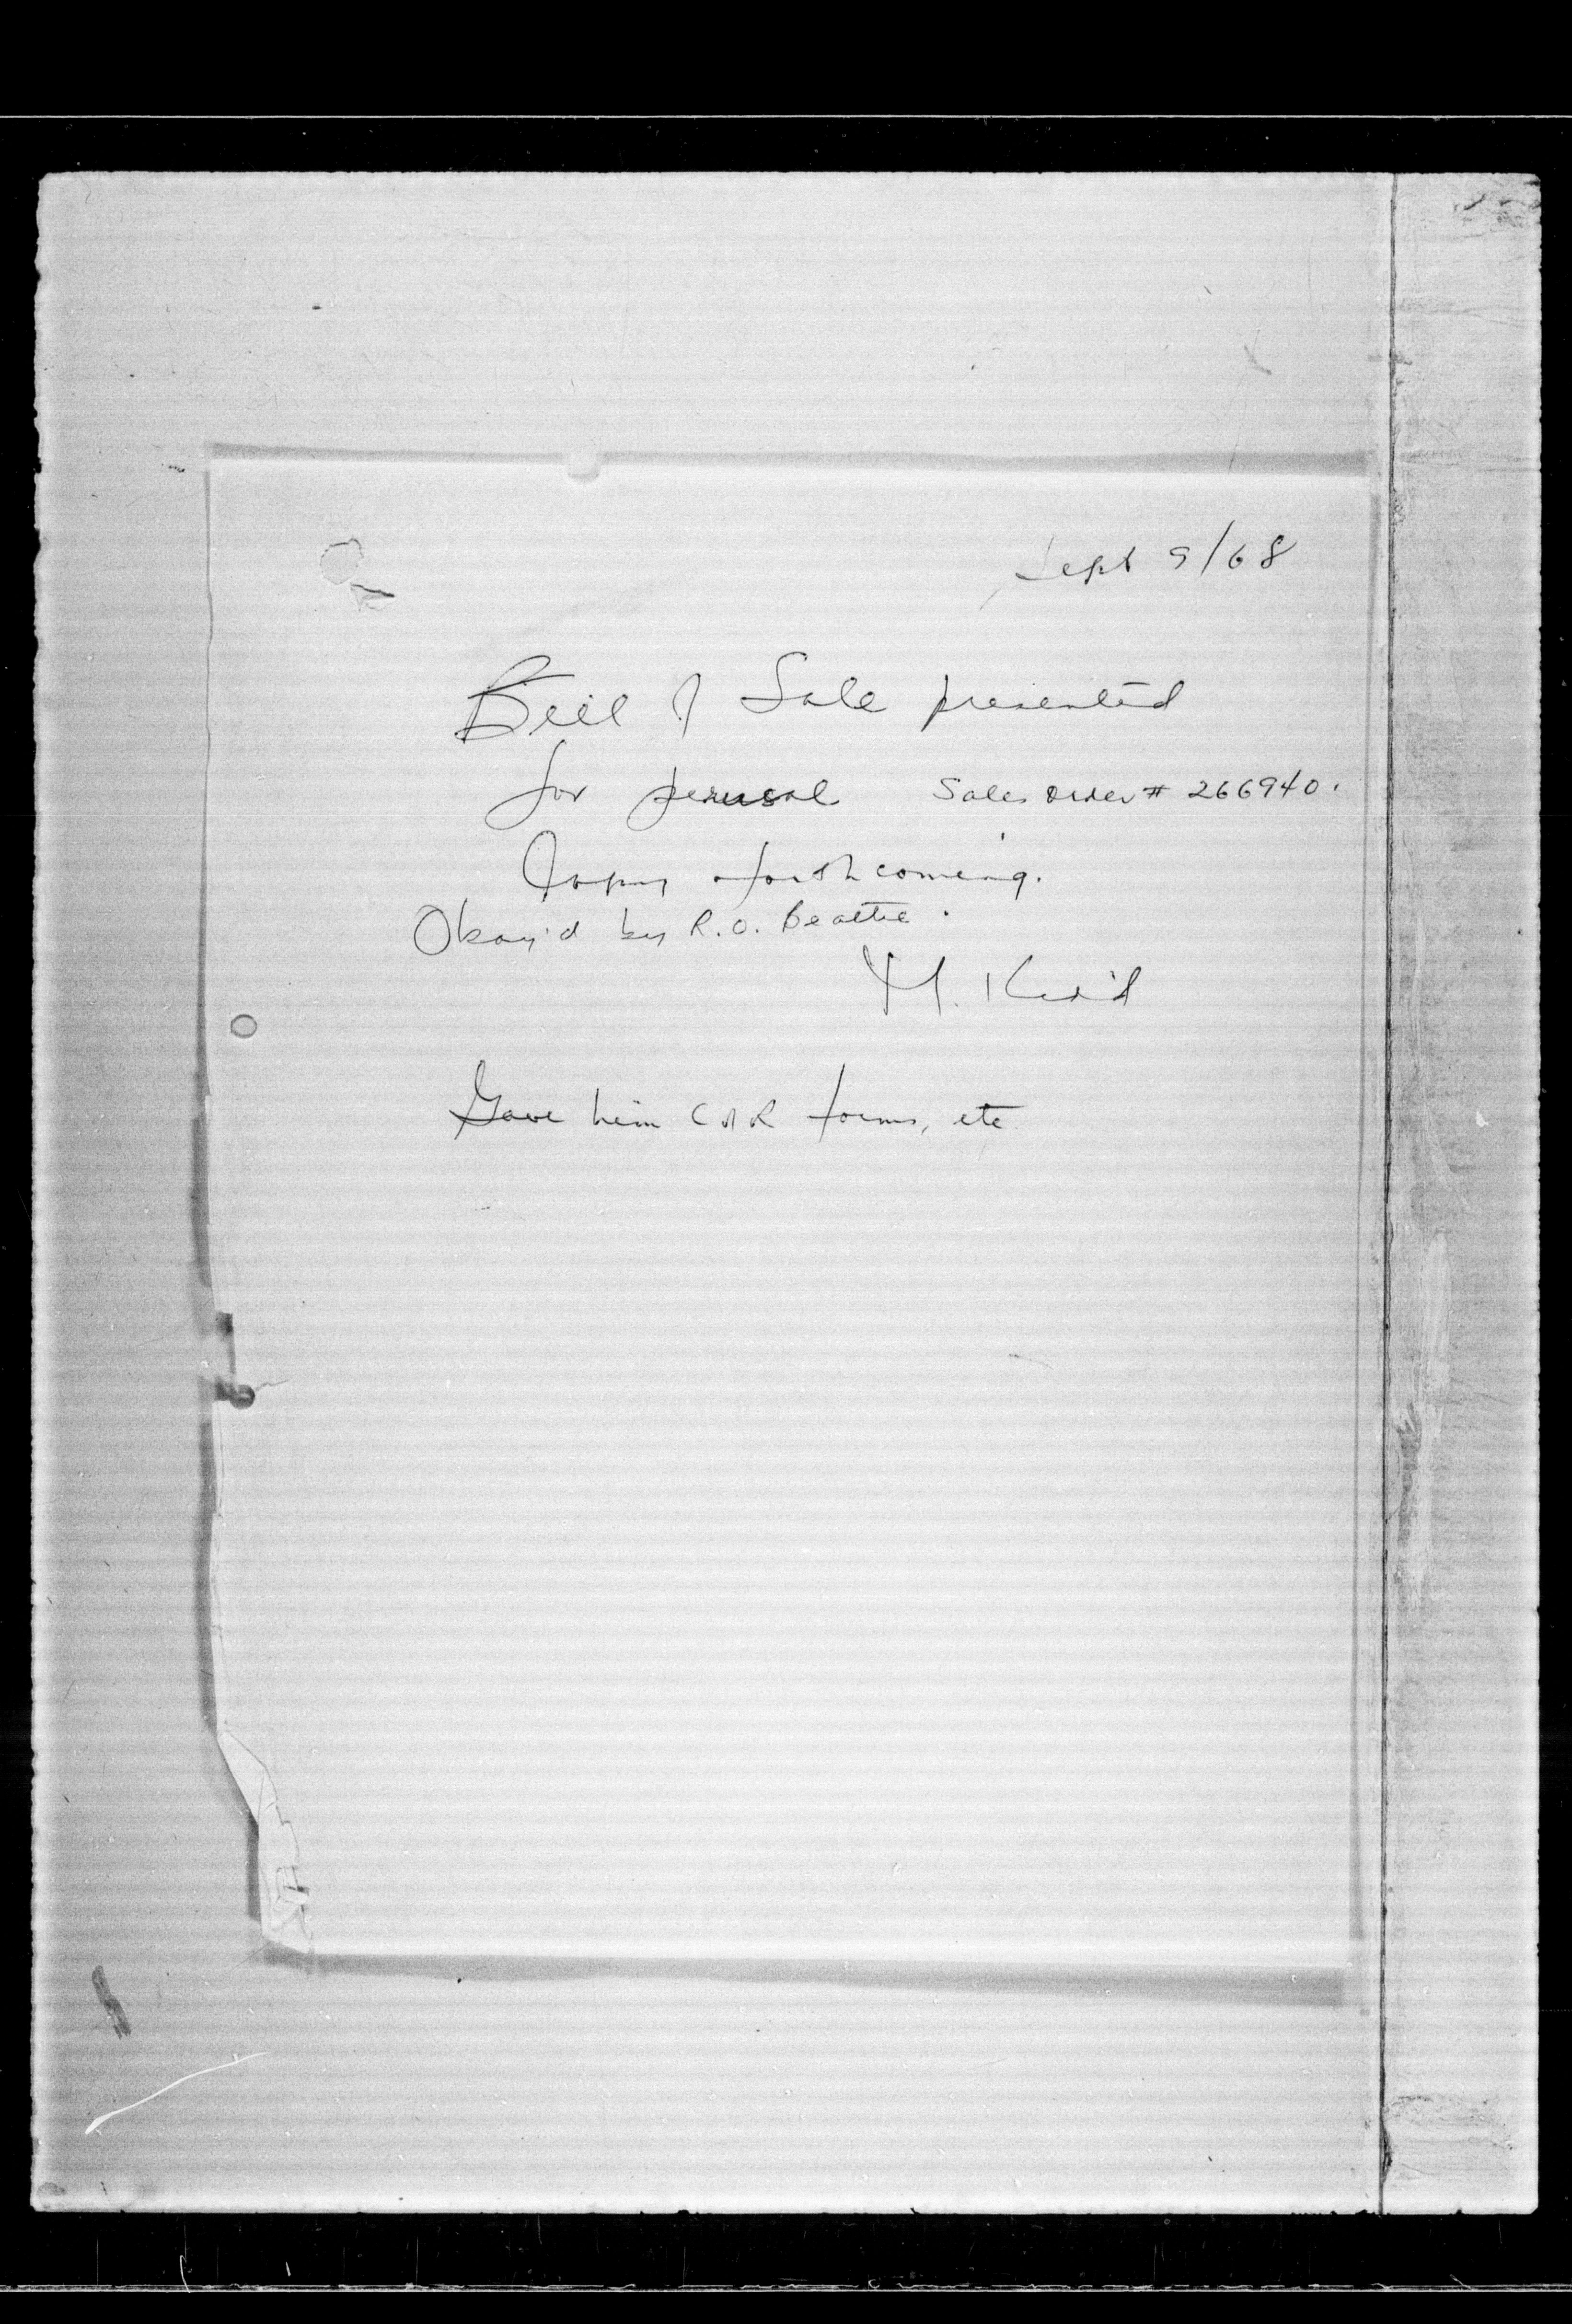 Sept 9/68
Bill of Sale presented
for perusal Sales order # 266940.
Copy forthcoming.
Okay'd by R.O. Beattie.
M.
Gave him C of R forms, etc